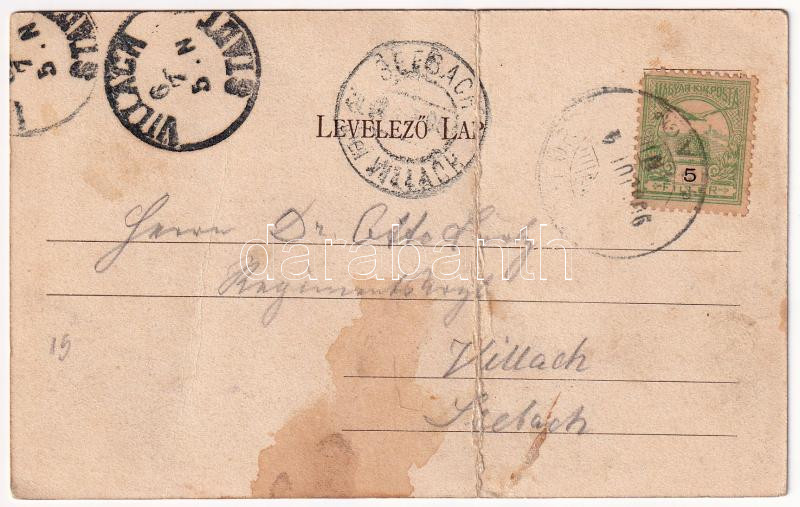 VILLACH
STADT
SEEBACH
BEI VILLACH
LEVELEZŐ LAP
MAGYAR KIR. POSTA
5
FILLÉR
Herrn Dr. Otto
Regimentsarzt
Villach
Seebach
15
darabanth